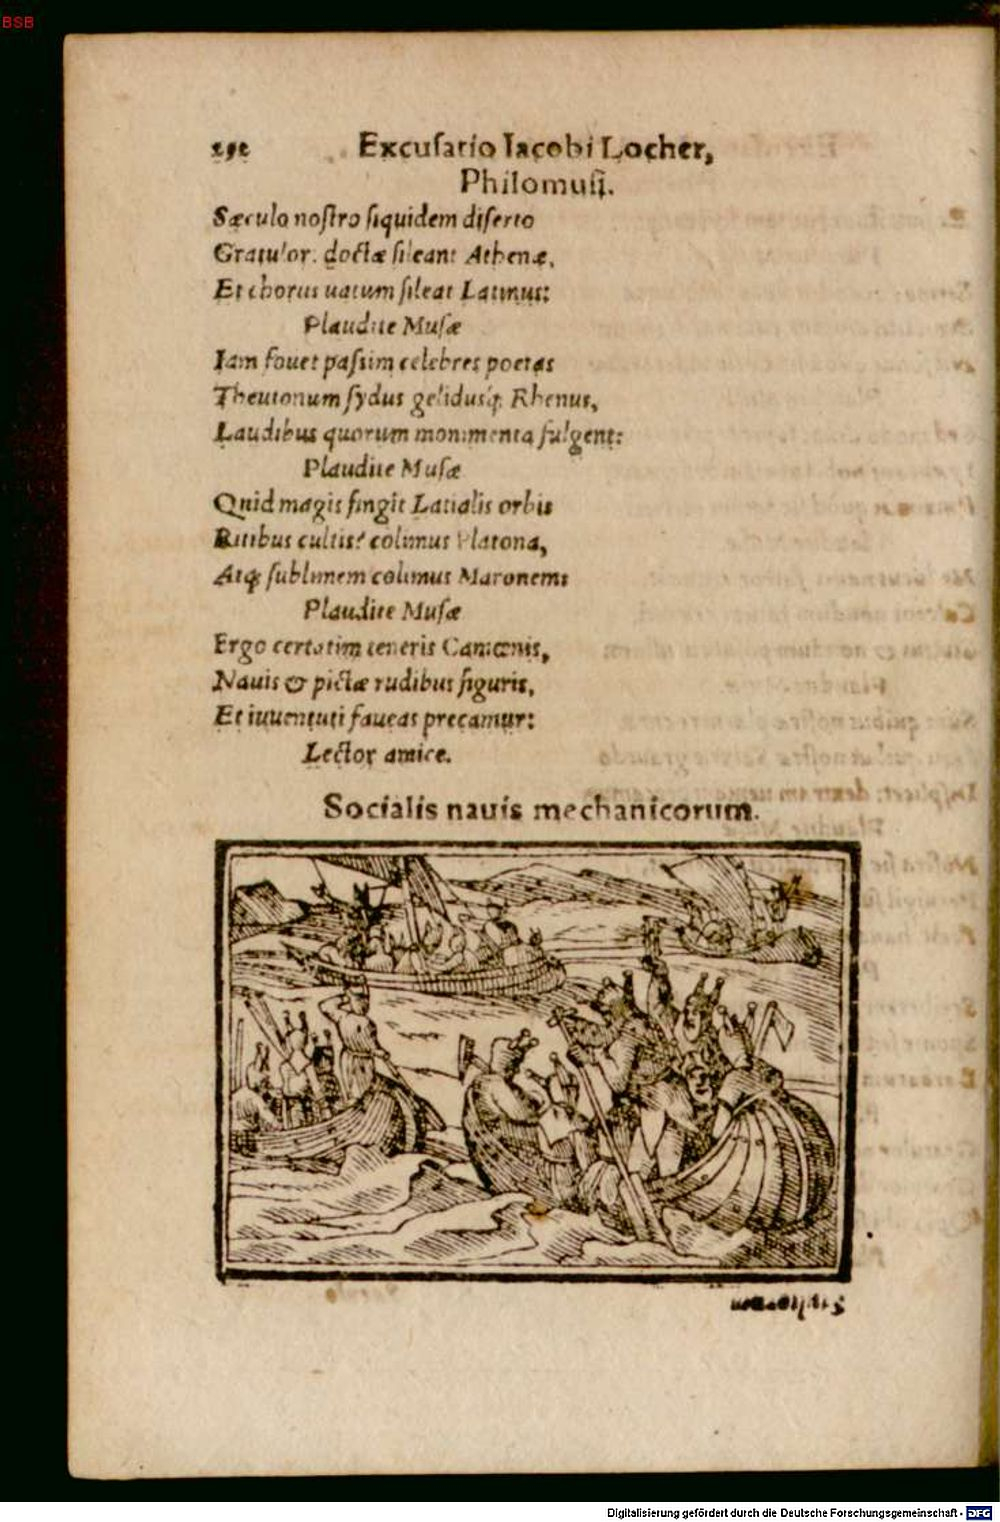 BSB
Excuſatio Iacobi Locher,
Philomuſi.
Sæculo noſtro ſiquidem diſerto
Gratulor: doctæ ſileant Athenæ,
Et chorus uatum ſileat Latinus:
Plaudite Muſæ
Iam fouet paſsim celebres poetas
Theutonum ſydus gelidusq́; Rhenus,
Laudibus quorum monimenta fulgent:
Plaudite Muſæ
Quid magis fingit Latialis orbis
Ritibus cultis? colimus Platona,
Atq; ſublimem colimus Maronem:
Plaudite Muſæ
Ergo certatim teneris Camœnis,
Nauis & pictæ rudibus figuris,
Et iuuentuti faueas precamur:
Lector amice.
Socialis nauis mechanicorum.
Digitalisierung gefördert durch die Deutsche Forschungsgemeinschaft - DFG